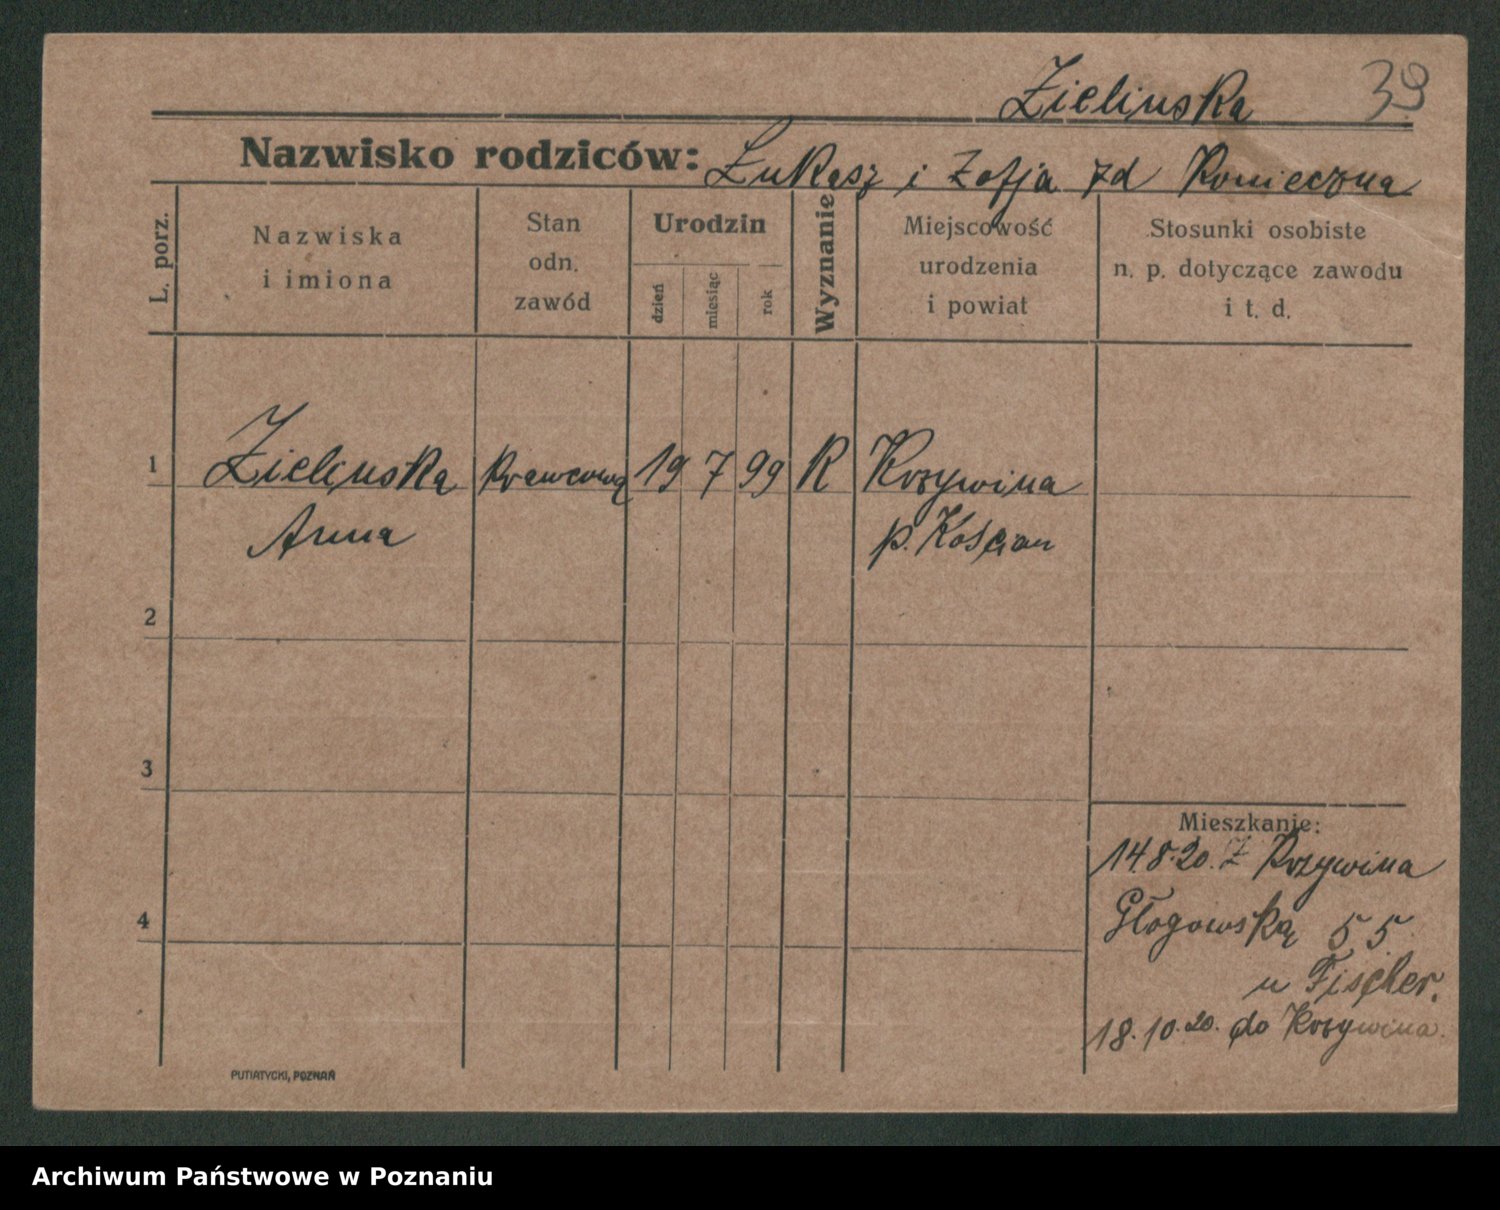 Zielinska 39
Nazwisko rodziców: Łukasz i Zofja zd Konieczna
L. porz.
Nazwiska
i imiona
Stan
odn.
zawód
Urodzin
dzień
miesiąc
rok
Wyznanie
Miejscowość
urodzenia
i powiat
Stosunki osobiste
n. p. dotyczące zawodu
i t. d.
1 Zielinska krawcową 19 7 99 R Krzywina
Anna p. Kościan
2
3
4
Mieszkanie:
14.8.20. Z Krzywina
Głogowską 55
u Fischer.
18.10.20. do Krzywina.
PUTIATYCKI, POZNAŃ
Archiwum Państwowe w Poznaniu